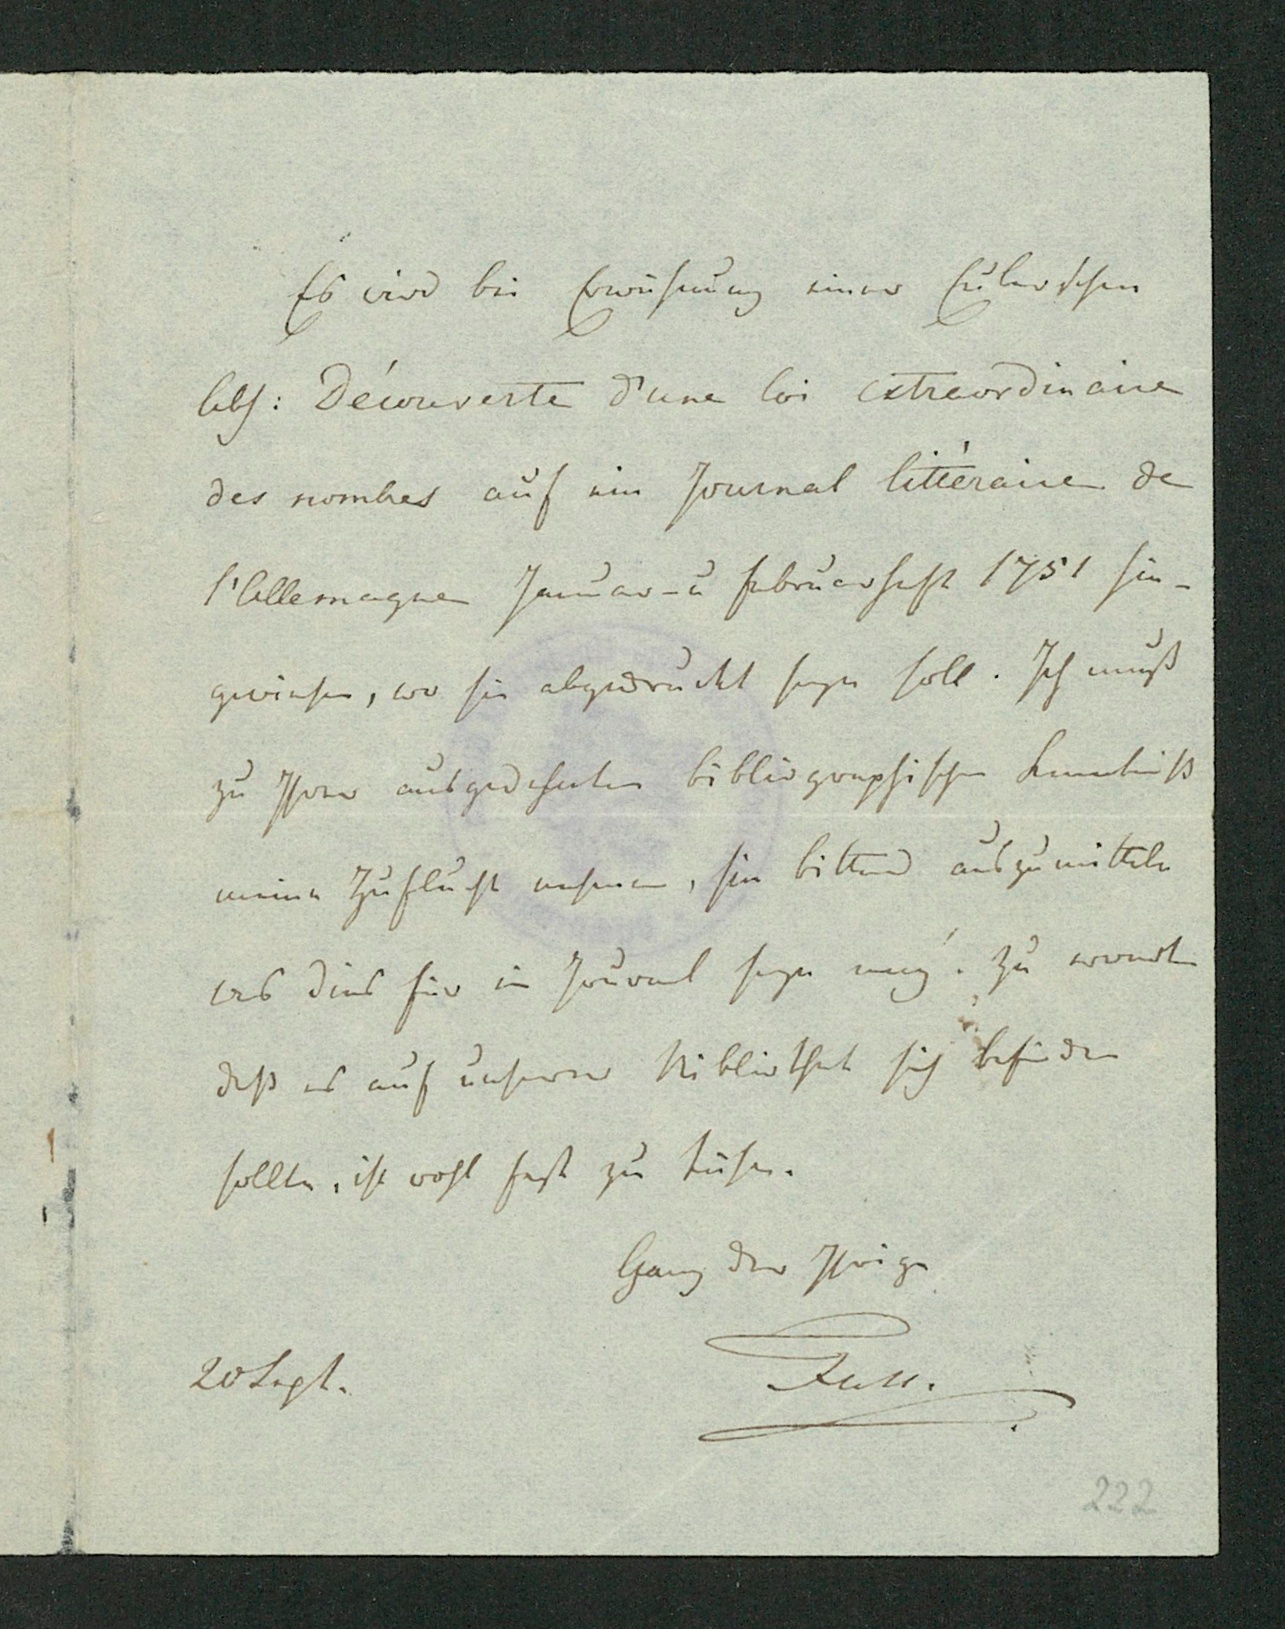 Es wird bei Erwähnung einer Eulerschen
Abh: Découverte d'une loi extraordinaire
des nombres auf ein Journal littéraire de
l'Allemagne Januar- u Februarheft 1751 hin-
gewiesen, wo sie abgedruckt seyn soll. Ich muß
zu Ihrer ausgedehnten bibliographischen Kenntniß
meine Zuflucht nehmen, Sie bittend auszumitteln
was dies für ein Journal seyn mag. Zu erwarten
daß es auf unserer Bibliothek sich befinden
sollte, ist wohl fast zu kühn.
Ganz der Ihrige
Fuss.
20 Sept.
222